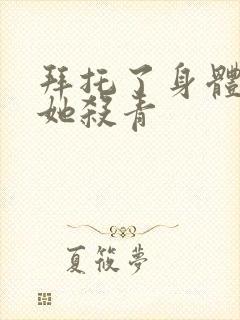 拜托了身體
她殺青
夏筱夢